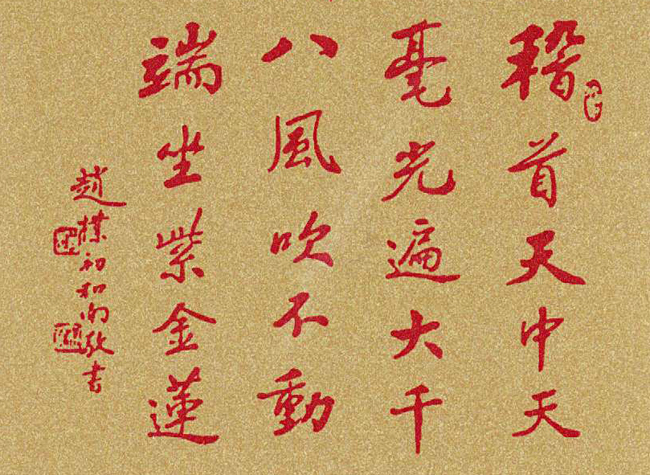 稽首天中天
毫光遍大千
八風吹不動
端坐紫金蓮
趙樸初和南敬書